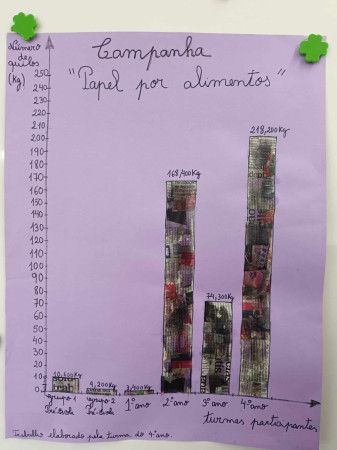 Campanha
"Papel por alimentos"
Número
de
quilos
(kg)
250
240
230
220
210
200
190
180
170
160
150
140
130
120
110
100
90
80
70
60
50
40
30
20
10
0
10,400Kg
4,200Kg
3,400Kg
168,400Kg
74,300Kg
218,200Kg
grupo 1
Pré-Escola
grupo 2
Pré-Escola
1º ano
2º ano
3º ano
4º ano
turmas participantes
Trabalho elaborado pela turma do 4º ano.